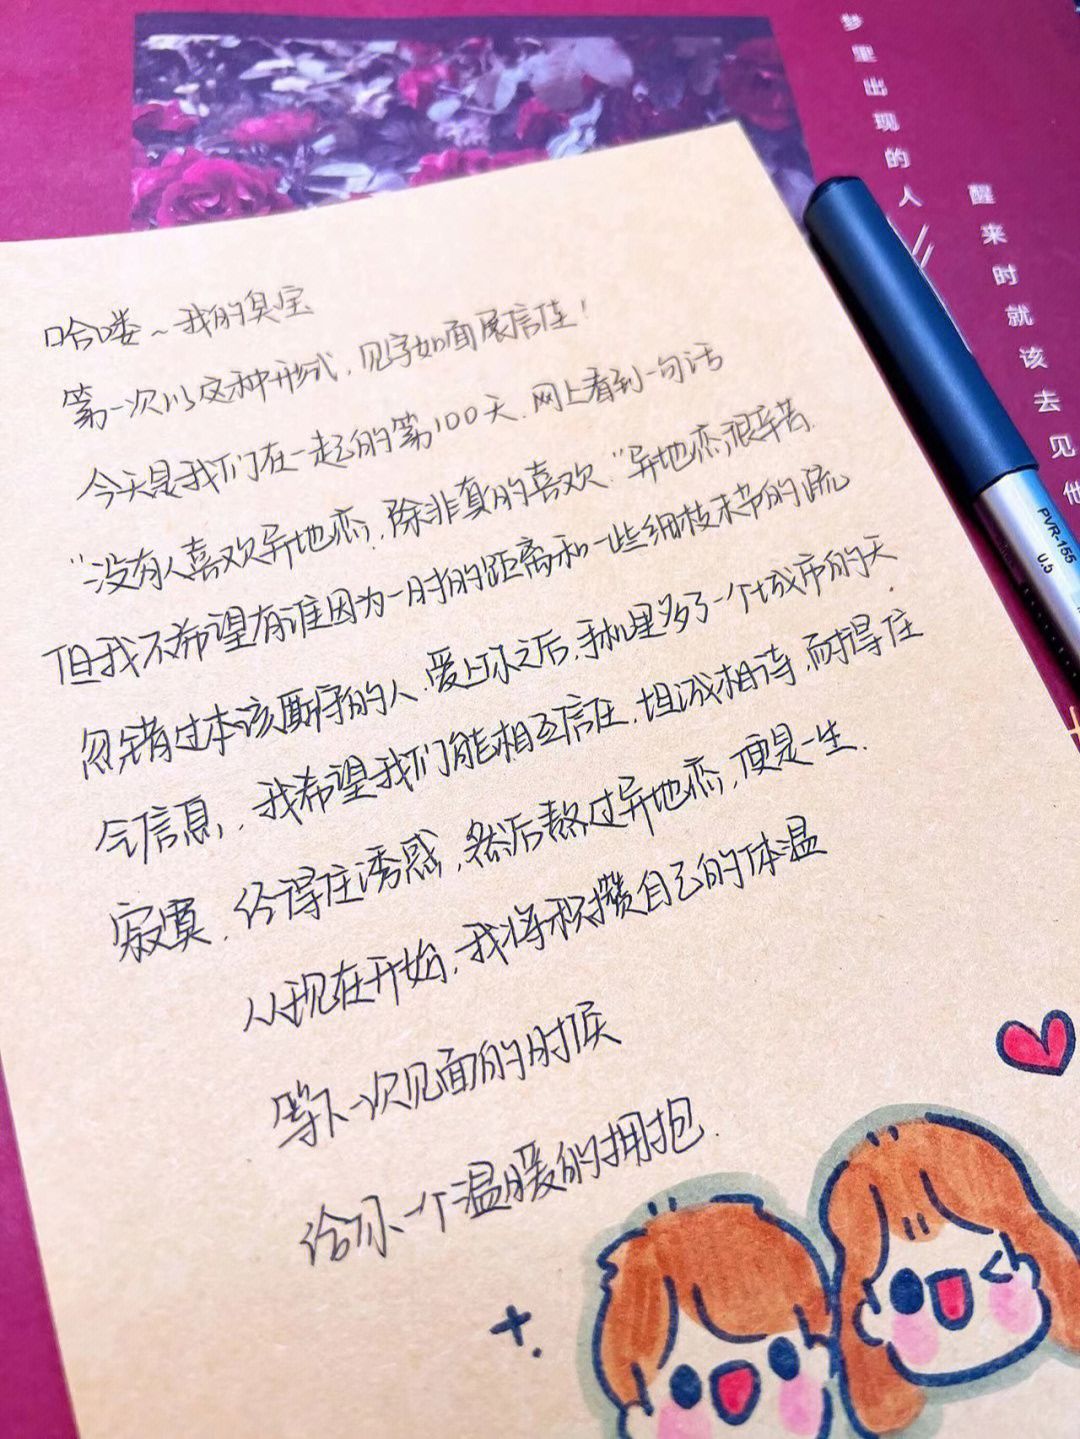 梦里出现的人
醒来时就该去见他
哈喽~我的臭宝
第一次以这种形式,见字如面展信佳!
今天是我们在一起的第100天.网上看到一句话
"没有人喜欢异地恋,除非真的喜欢."异地恋很辛苦.
但我不希望有谁因为一时的距离和一些细枝末节的疏
忽错过本该厮守的人.爱上你之后,手机里多了一个城市的天.
气信息,我希望我们能相互信任.坦诚相待,耐得住
寂寞.经得住诱惑,然后熬过异地恋,便是一生.
从现在开始,我将积攒自己的体温
等下一次见面的时候
给你一个温暖的拥抱.
PVR-155
0.5